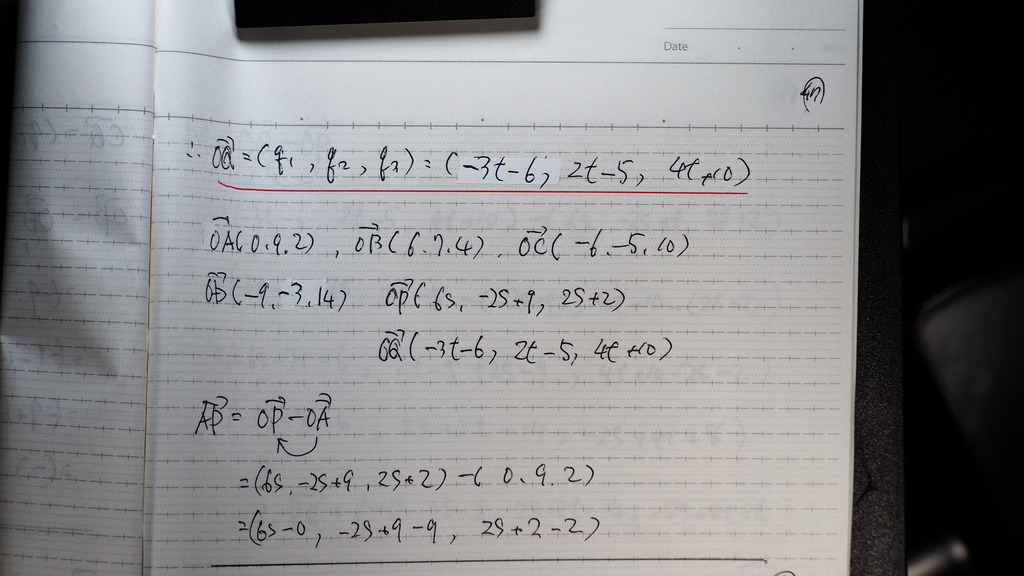 Date
∴ OQ⃗ = (q₁, q₂, q₃) = (-3t-6, 2t-5, 4t+10)
OA⃗(0.9.2), OB⃗(6.7.4). OC⃗(-6.-5.10)
OD⃗(-9.-3.14) OP⃗(6s, -2s+9, 2s+2)
OQ⃗(-3t-6, 2t-5, 4t+10)
AP⃗ = OP⃗-OA⃗
=(6s.-2s+9, 2s+2)-( 0.9.2)
=(6s-0, -2s+9-9, 2s+2-2)